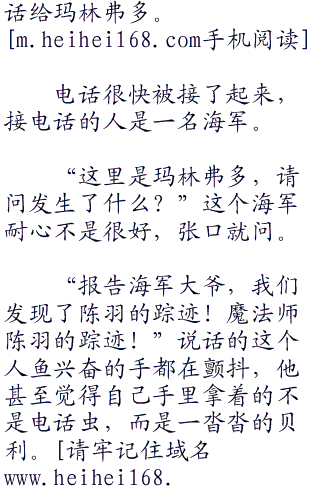 话给玛林弗多。
[m.heihei168.com手机阅读]
电话很快被接了起来，
接电话的人是一名海军。
“这里是玛林弗多，请
问发生了什么？”这个海军
耐心不是很好，张口就问。
“报告海军大爷，我们
发现了陈羽的踪迹！魔法师
陈羽的踪迹！”说话的这个
人鱼兴奋的手都在颤抖，他
甚至觉得自己手里拿着的不
是电话虫，而是一沓沓的贝
利。[请牢记住域名
www.heihei168.